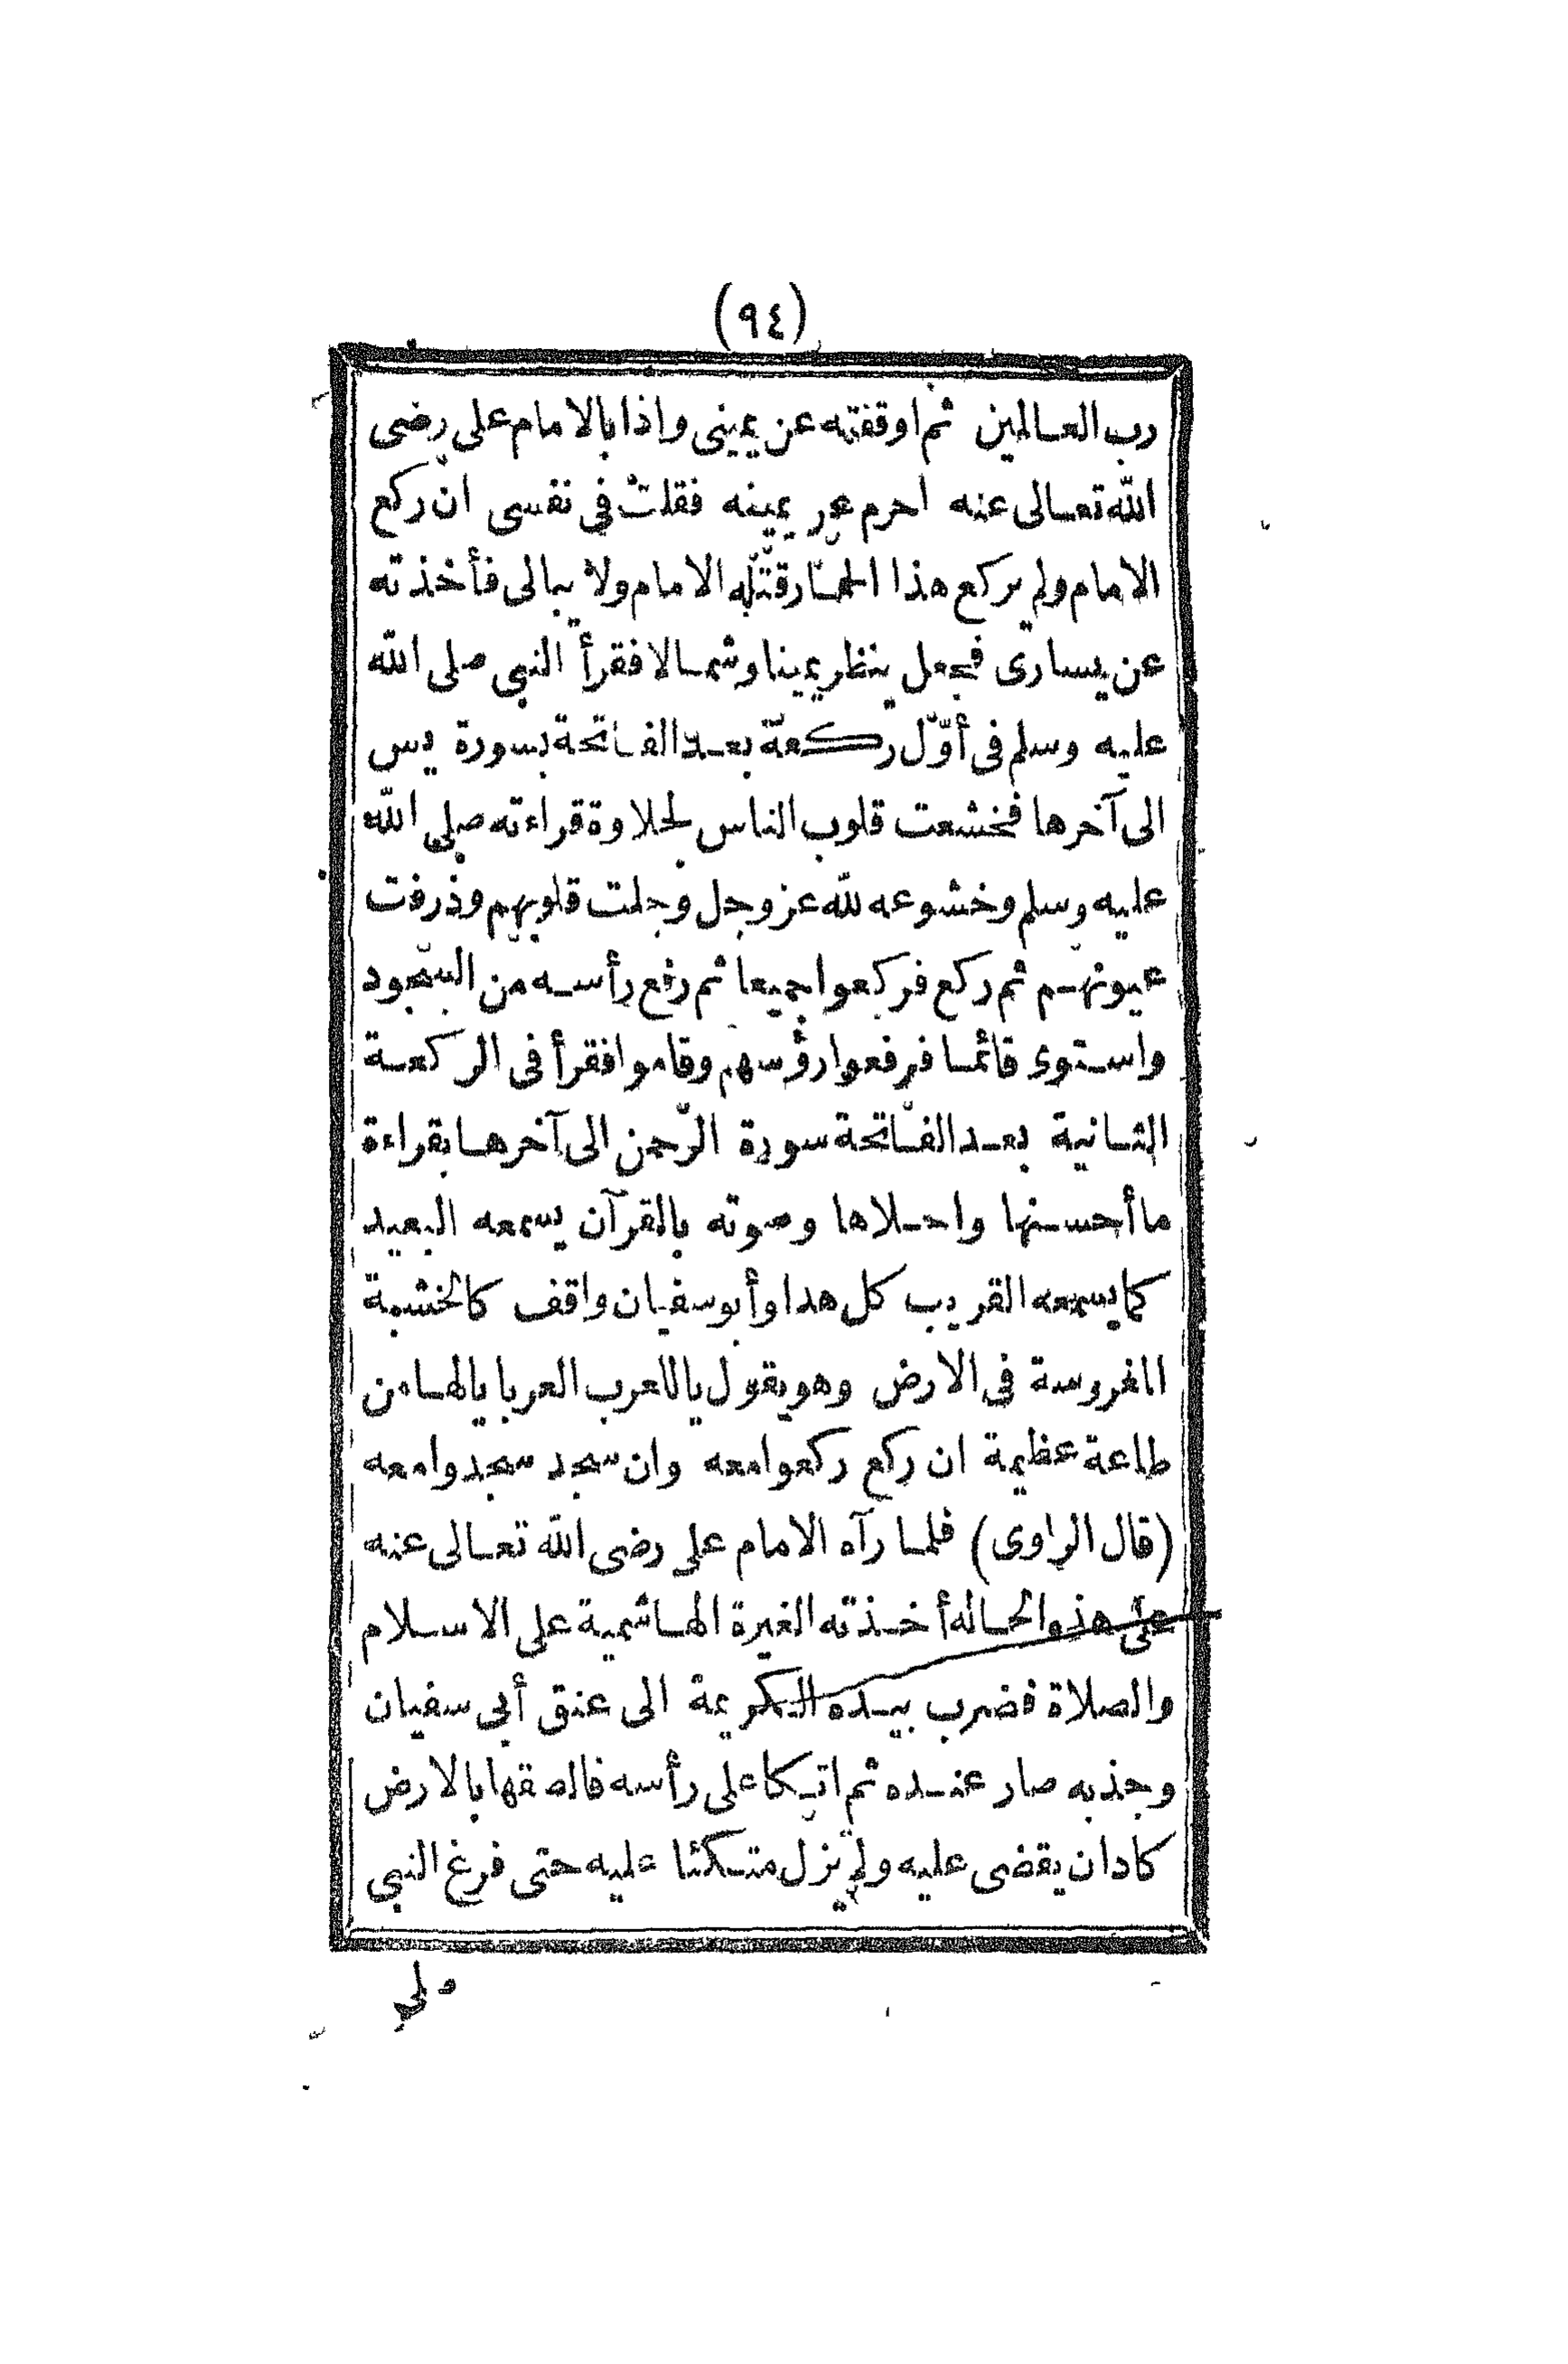 (٩٤)
رب العالمين ثم اوقفته عن يمينى واذا بالامام على رضى
الله تعالى عنه احرم عن يمينه فقلت فى نفسى ان ركع
الامام ولم يركع هذا الجبار قتله الامام ولا يبالى فأخذته
عن يسارى فجعل ينظر يمينا وشمالا فقرأ النبى صلى الله
عليه وسلم فى أوّل ركعة بعد الفاتحة بسورة يس
الى آخرها فخشعت قلوب الناس لحلاوة قراءته صلى الله
عليه وسلم وخشوعه لله عز وجل وجلت قلوبهم وذرفت
عيونهم ثم ركع فركعوا جميعا ثم رفع رأسه من السجود
واستوى قائما فرفعوا رؤسهم وقاموا فقرأ فى الركعة
الثانية بعد الفاتحة سورة الرّحمن الى آخرها بقراءة
ما أحسنها واحلاها وصوته بالقرآن يسمعه البعيد
كما يسمعه القريب كل هدا وأبو سفيان واقف كالخشبة
المغروسة فى الارض وهو يقول ياللعرب العربا يالها من
طاعة عظيمة ان ركع ركعوا معه وان سجد سجدوا معه
(قال الراوى) فلما رآه الامام على رضى الله تعالى عنه
على هذه الحالة أخذته الغيرة الهاشمية على الاسلام
والصلاة فضرب بيده الكريمة الى عنق أبى سفيان
وجذبه صار عنده ثم اتكا على رأسه فالصقها بالارض
كادان يقضى عليه ولم يزل متكئا عليه حتى فرغ النبى
صلى